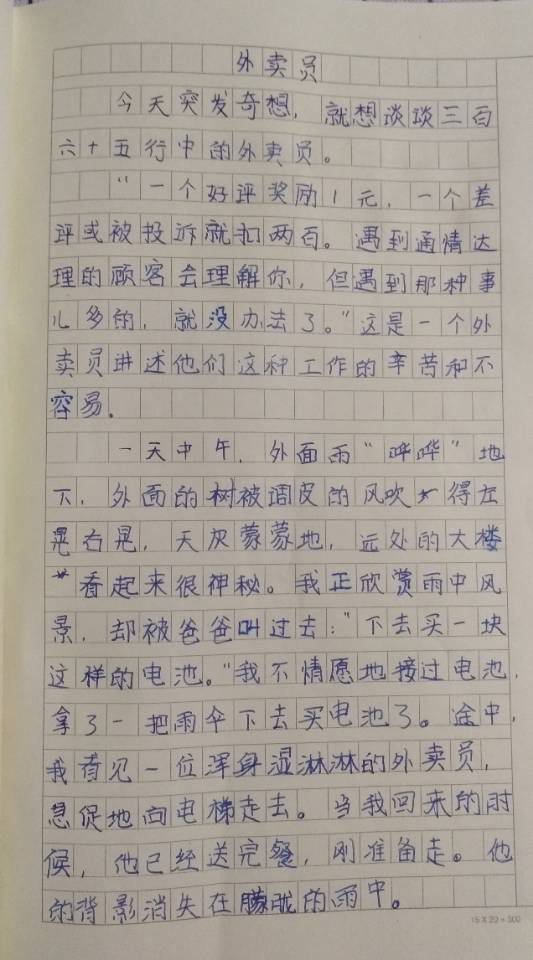 外卖员
今天突发奇想，就想谈谈三百
六十五行中的外卖员。
“一个好评奖励1元，一个差
评或被投诉就扣两百。遇到通情达
理的顾客会理解你，但遇到那种事
儿多的，就没办法了。”这是一个外
卖员讲述他们这种工作的辛苦和不
容易.
一天中午，外面雨“哗哗”地
下，外面的树被调皮的风吹得左
晃右晃，天灰蒙蒙地，远处的大楼
看起来很神秘。我正欣赏雨中风
景，却被爸爸叫过去：“下去买一块
这样的电池。”我不情愿地接过电池，
拿了一把雨伞下去买电池了。途中，
我看见一位浑身湿淋淋的外卖员，
急促地向电梯走去。当我回来的时
候，他已经送完餐，刚准备走。他
的背影消失在朦胧的雨中。
15×20=300